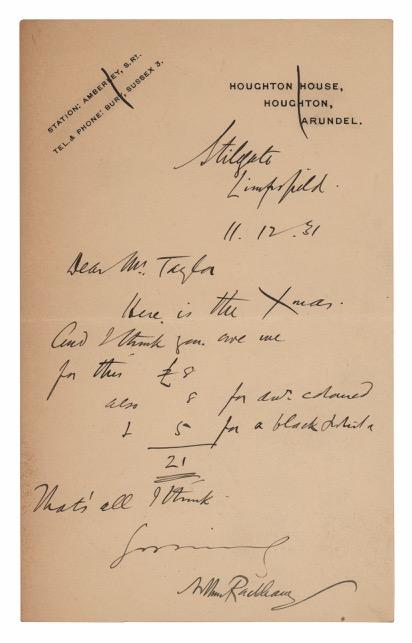 STATION: AMBERLEY, S. RY.
TEL. & PHONE: BURY, SUSSEX 3.
HOUGHTON HOUSE,
HOUGHTON,
ARUNDEL.
Stilgate
Limpsfield.
11. 12. 31
Dear Mr. Taylor
Here is the Xmas.
And I think you owe me
for this £8
also 8 for coloured
& 5 for a black & white
21
That's all I think.
Arthur Rackham